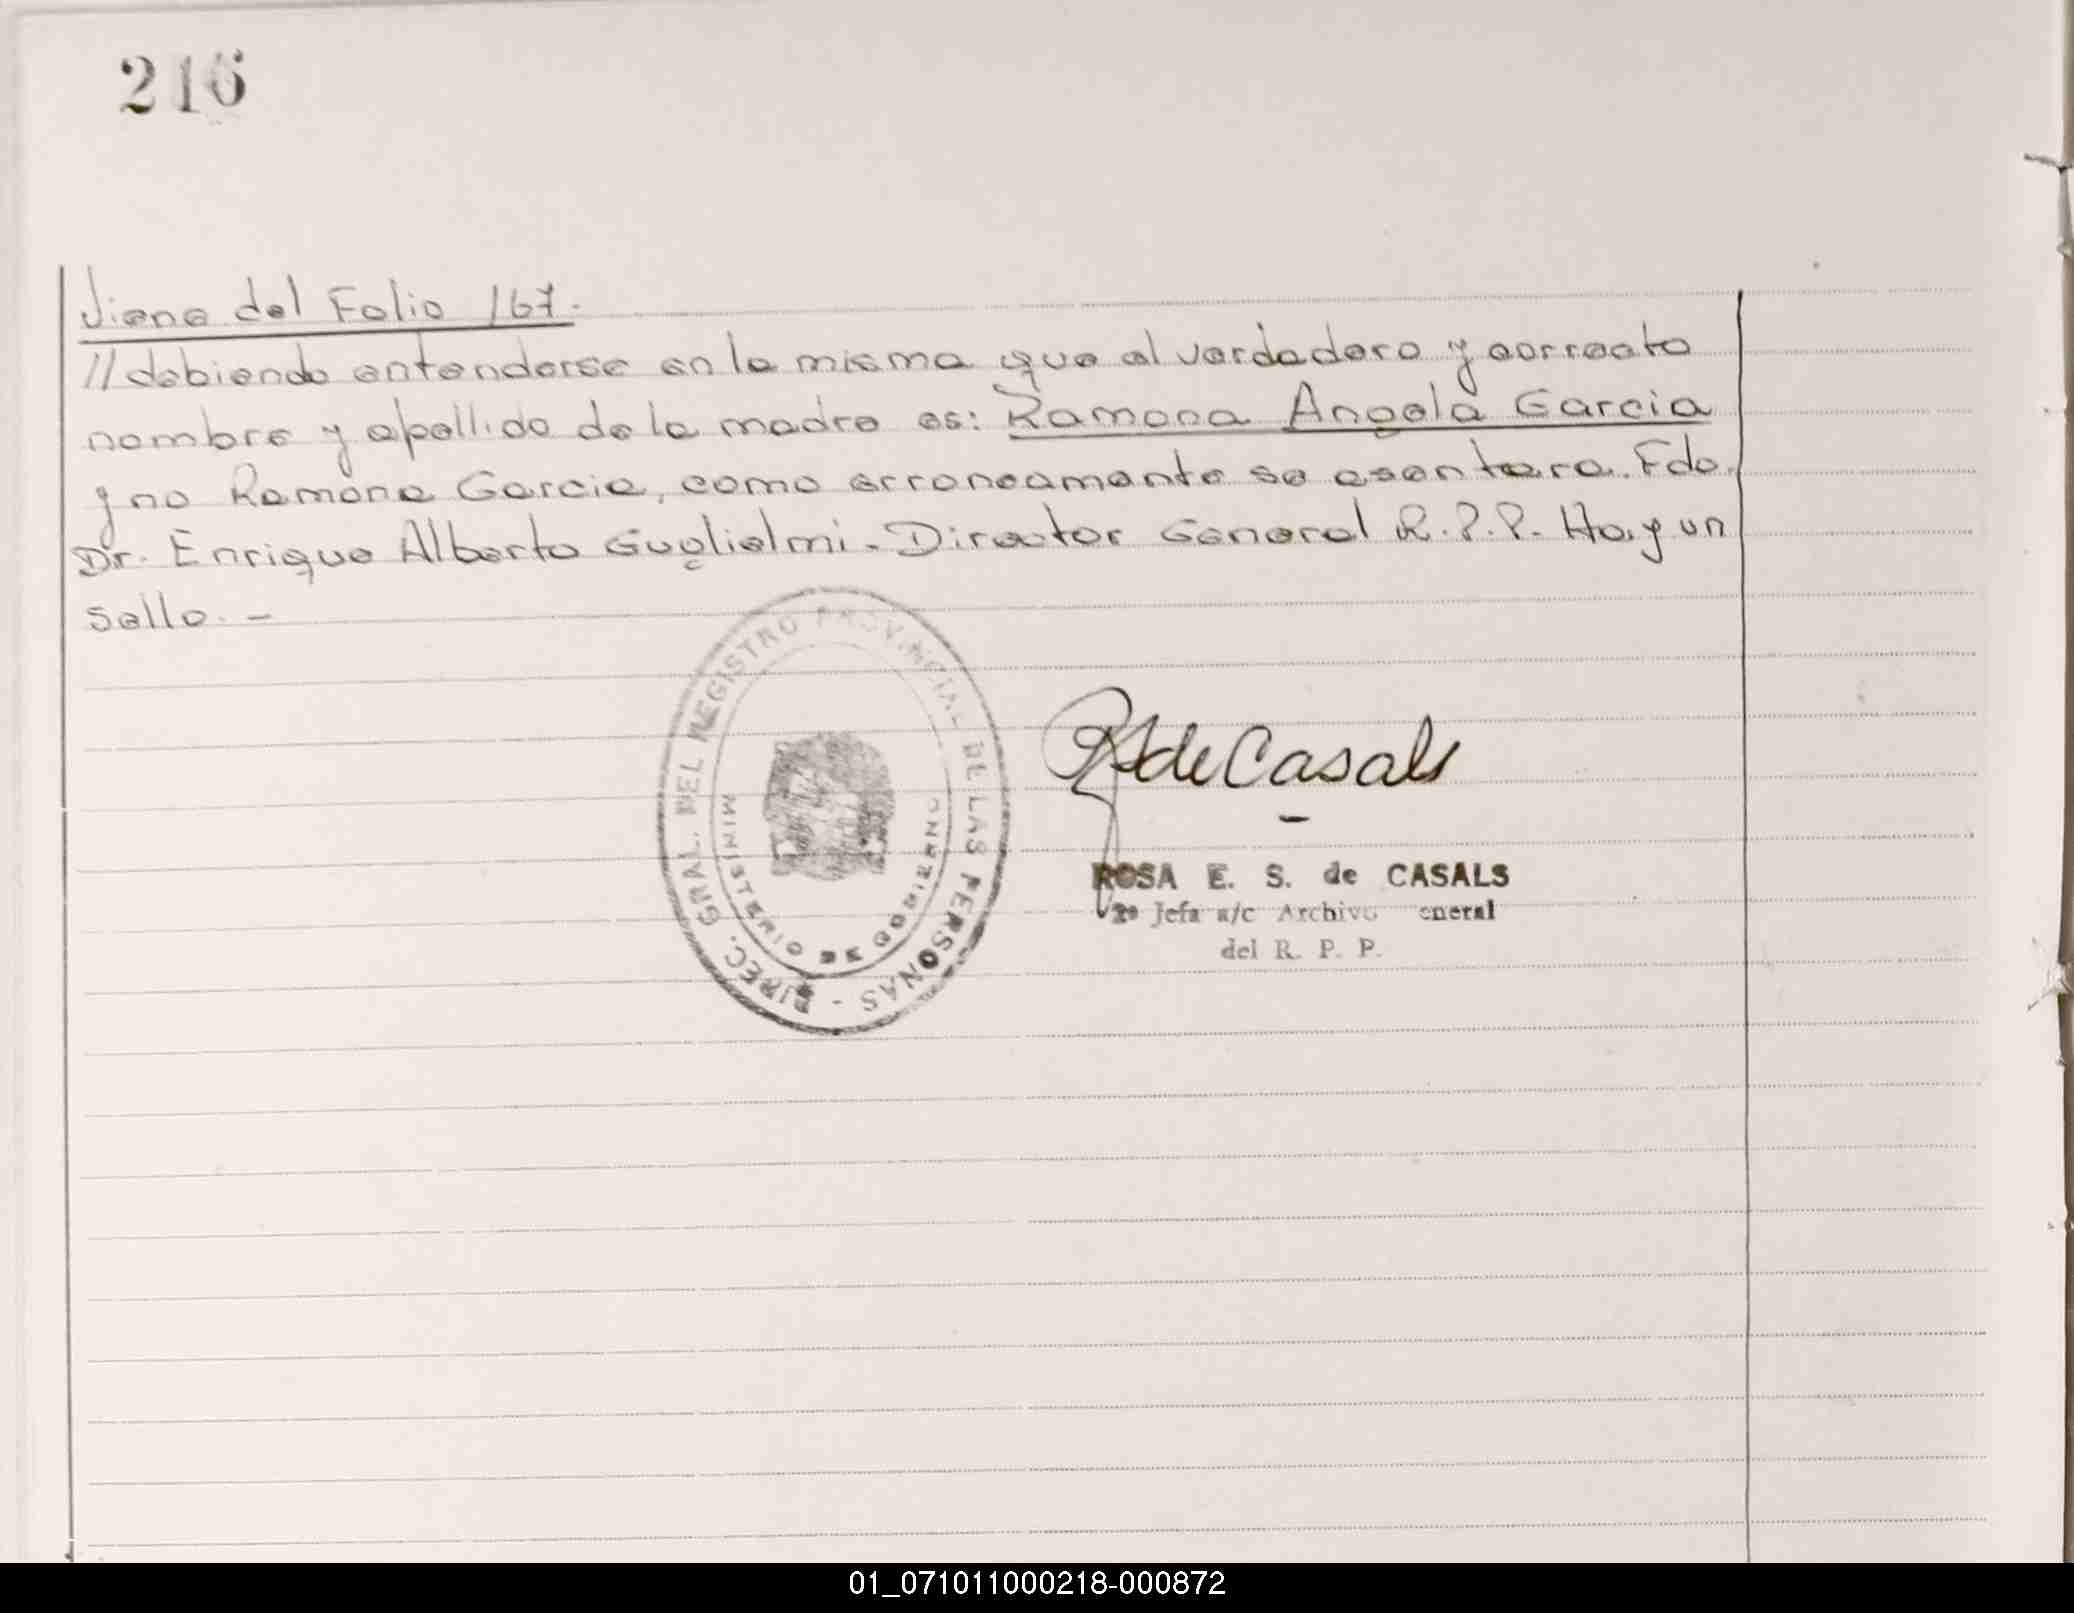 216
Viene del Folio 167.
//debiendo entenderse en la misma que el verdadero y correcto
nombre y apellido de la madre es: Ramona Angela Garcia
y no Ramona Garcia, como erroneamente se asentara. Fdo.
Dr. Enrique Alberto Guglielmi - Director General R.P.P. Hay un
sello. -
DIREC. GRAL. DEL REGISTRO PROVINCIAL DE LAS PERSONAS -
MINISTERIO DE GOBIERNO
RS de Casals
ROSA E. S. de CASALS
2º Jefa a/c Archivo eneral
del R. P. P.
01_071011000218-000872